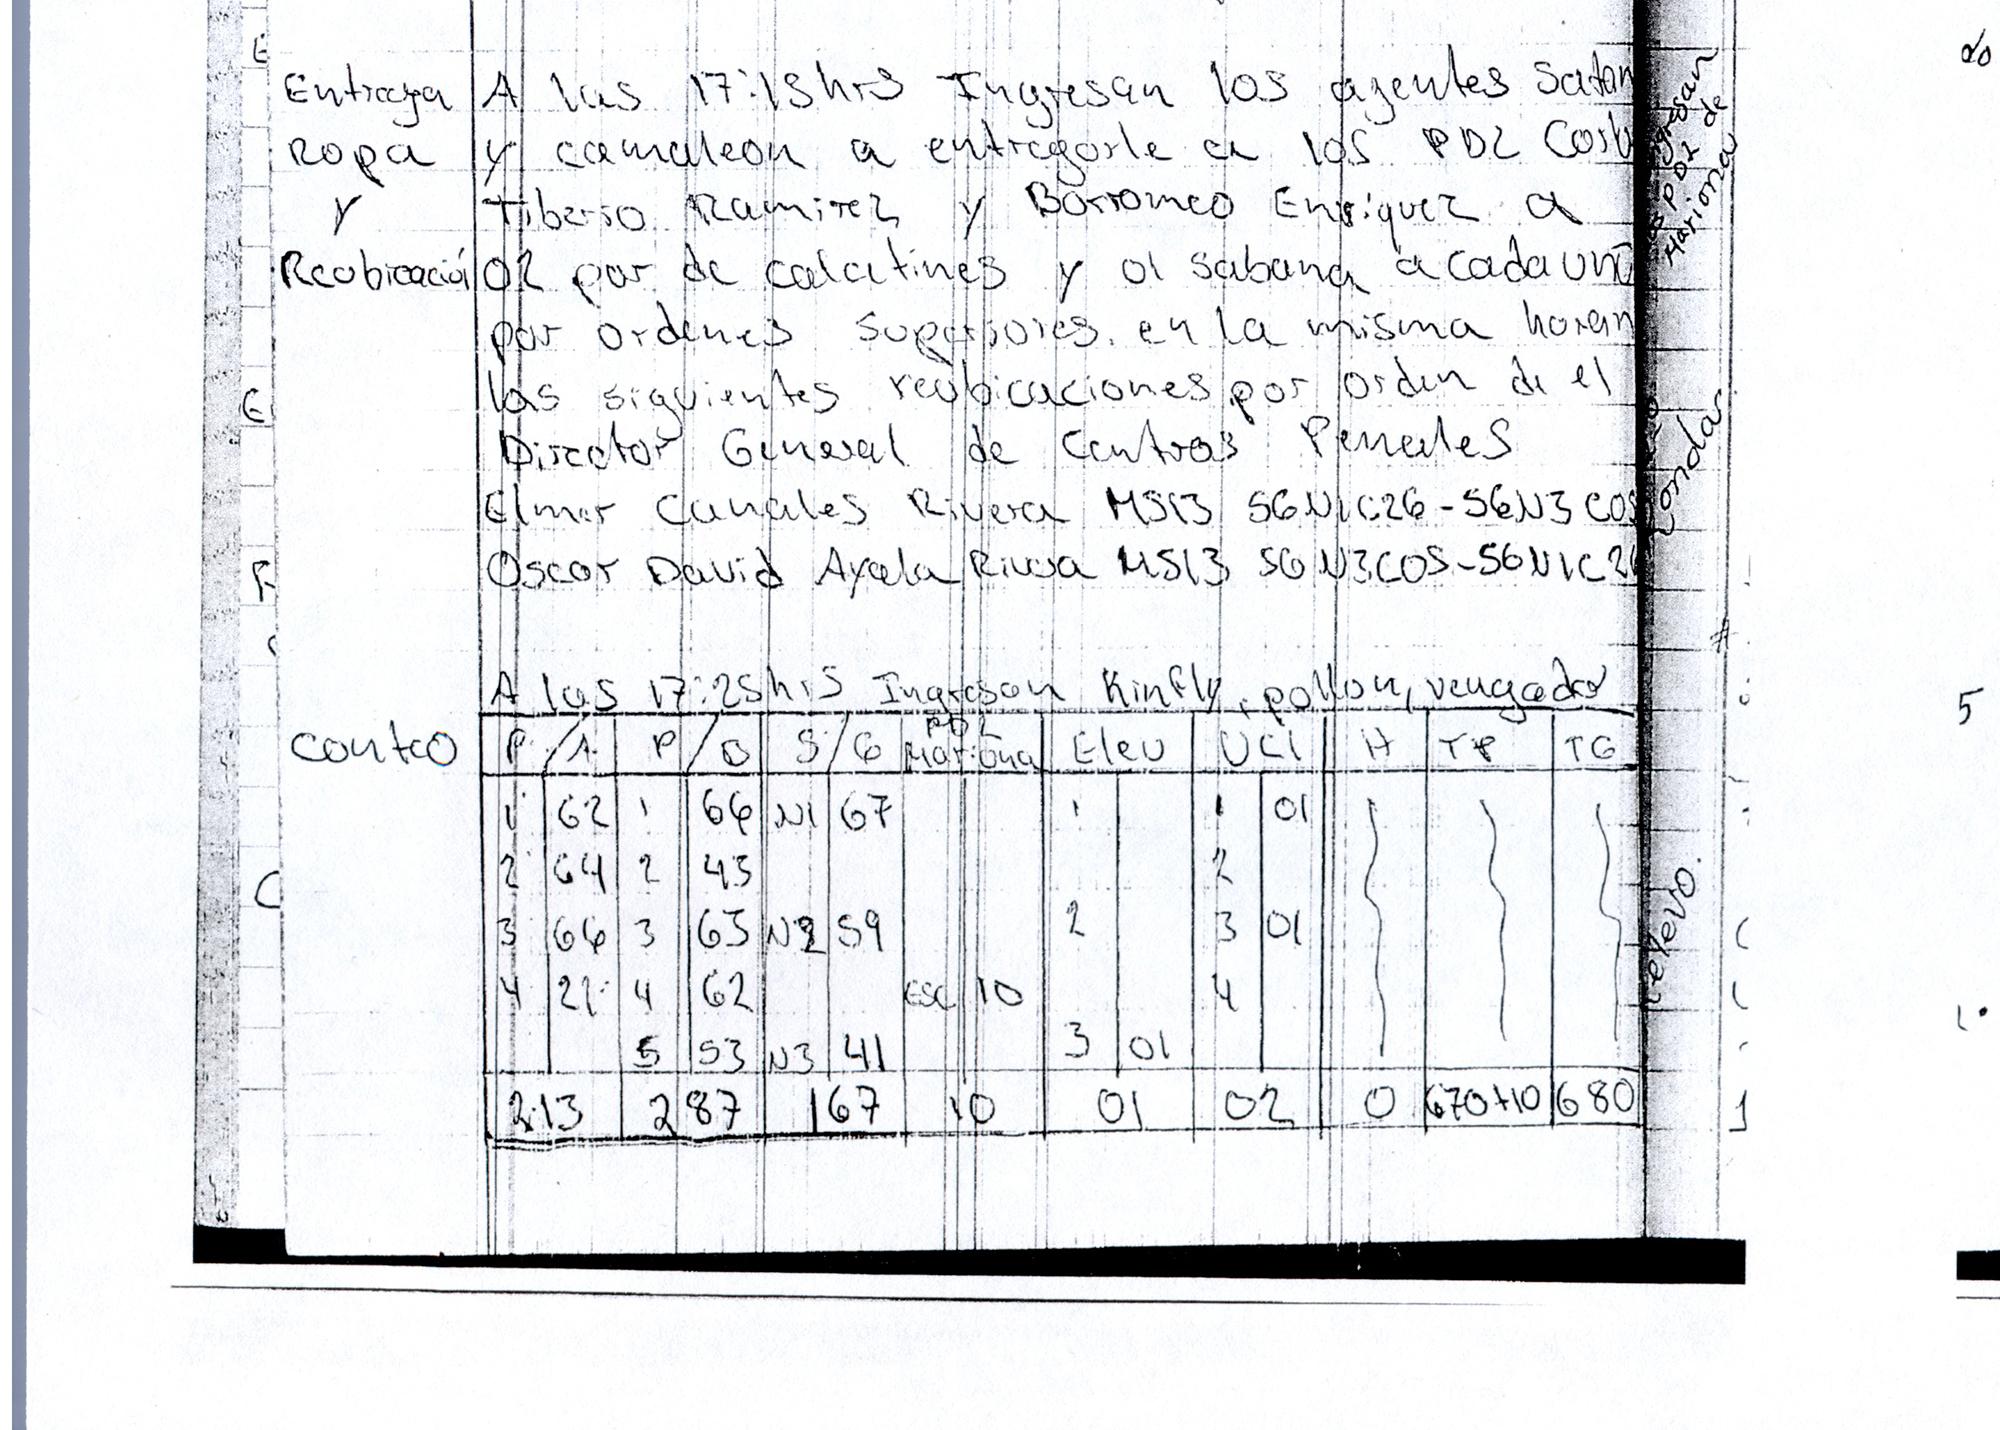 Entrega A las 17:15hrs Ingresan los agentes Satan
Ropa y camaleon a entregarle a los PD2 Carlos
y Tiberio Ramirez y Borromeo Enriquez a
Reubicación 02 par de calcetines y 01 sabana a cada uno
por ordenes superiores. en la misma hora
las siguientes reubicaciones por orden de el
Director General de Centros Penales
Elmer Canales Rivera MS13 S6N1C26-S6N3C05
Oscar David Ayala Rivera MS13 S6N3C05-S6N1C26
A las 17:25hrs Ingresan Kinfly, pollon, vengador
conteo P/A P/B S/G PD2 Mariona Elev UCI H TP TG
1 62 1 64 N1 67 1 1 01
2 64 2 45 2
3 66 3 63 N2 59 2 3 01
4 21 4 62 ESC 10 4
5 53 N3 41 3 01
213 287 167 10 01 02 0 670+10 680
PD2 de
Mariona
relevo.